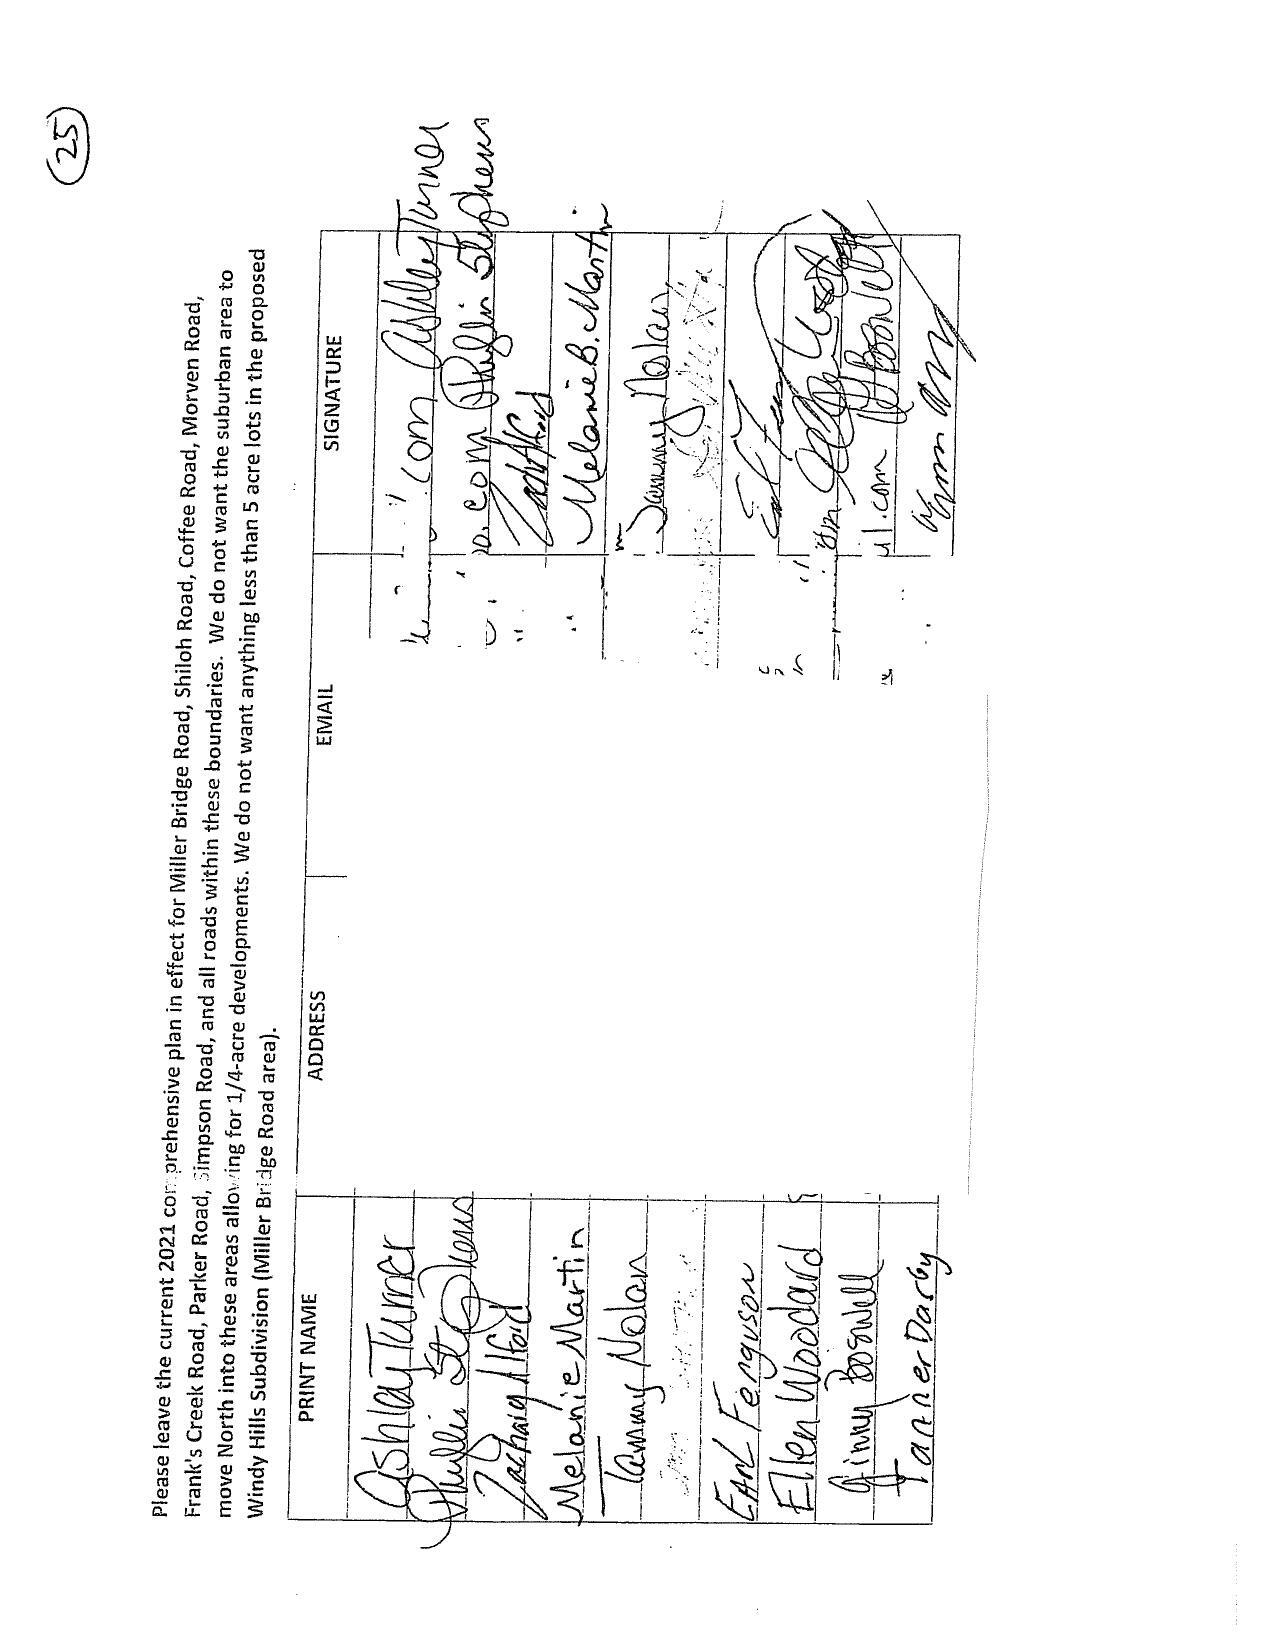 25
Please leave the current 2021 comprehensive plan in effect for Miller Bridge Road, Shiloh Road, Coffee Road, Morven Road,
Frank's Creek Road, Parker Road, Simpson Road, and all roads within these boundaries. We do not want the suburban area to
move North into these areas allowing for 1/4-acre developments. We do not want anything less than 5 acre lots in the proposed
Windy Hills Subdivision (Miller Bridge Road area).
PRINT NAME ADDRESS EMAIL SIGNATURE
Ashley Turner com Ashley Turner
Phyllis Stephens .com Phyllis Stephens
Zachary Alford Zach Alford
Melanie Martin Melanie B. Martin
Tammy Nolan m Tammy Nolan
Earl Ferguson
Ellen Woodard
Ginny Boswell il.com Boswell
Tanner Darby